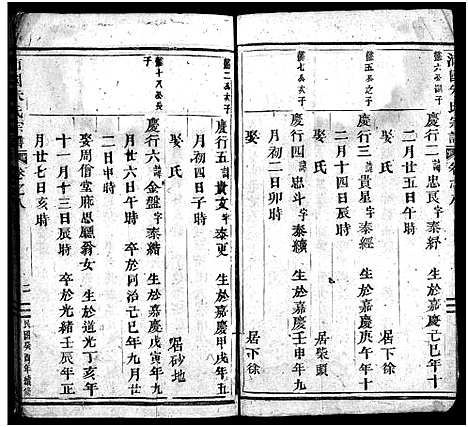 蒲圻朱氏宗譜 卷之八
慶行二 諱 忠琴 字 泰紓 生於嘉慶己巳年十
二月廿五日午時 居下徐
娶氏
慶行三 諱 貴星 字 泰經 生於嘉慶庚午年十
二月十四日辰時 居柴頭
娶氏
慶行四 諱 忠斗 字 泰續 生於嘉慶壬申年九
月初二日卯時 居下徐
娶氏
慶行五 諱 貴文 字 泰更 生於嘉慶甲戌年五
月初四日子時 居砂地
娶氏
慶行六 諱 金盤 字 泰緒 生於嘉慶戊寅年九
月廿六日午時 卒於同治己巳年九月廿
二日申時
娶周僧堂麻思鵬翁女 生於道光丁亥年
十一月十三日辰時 卒於光緒壬辰年正
月廿七日亥時
二
民國癸酉年續修